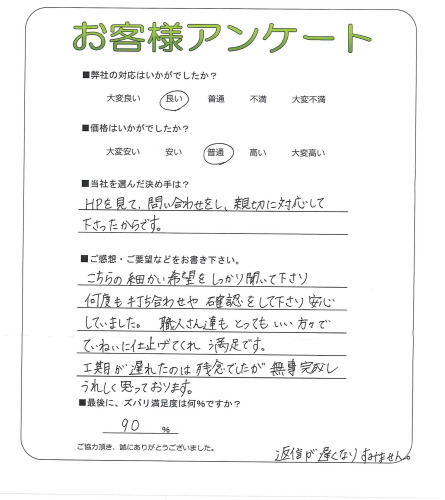 お客様アンケート
■弊社の対応はいかがでしたか？
大変良い 良い 普通 不満 大変不満
■価格はいかがでしたか？
大変安い 安い 普通 高い 大変高い
■当社を選んだ決め手は？
HPを見て、問い合わせをし、親切に対応して
下さったからです。
■ご感想・ご要望などをお書き下さい。
こちらの細かい希望をしっかり聞いて下さり
何度も打ち合わせや確認をして下さり安心
していました。職人さん達もとってもいい方々で
ていねいに仕上げてくれ満足です。
工期が遅れたのは残念でしたが無事完成し
うれしく思っております。
■最後に、ズバリ満足度は何％ですか？
90 ％
ご協力頂き、誠にありがとうございました。
返信が遅くなりすみません。